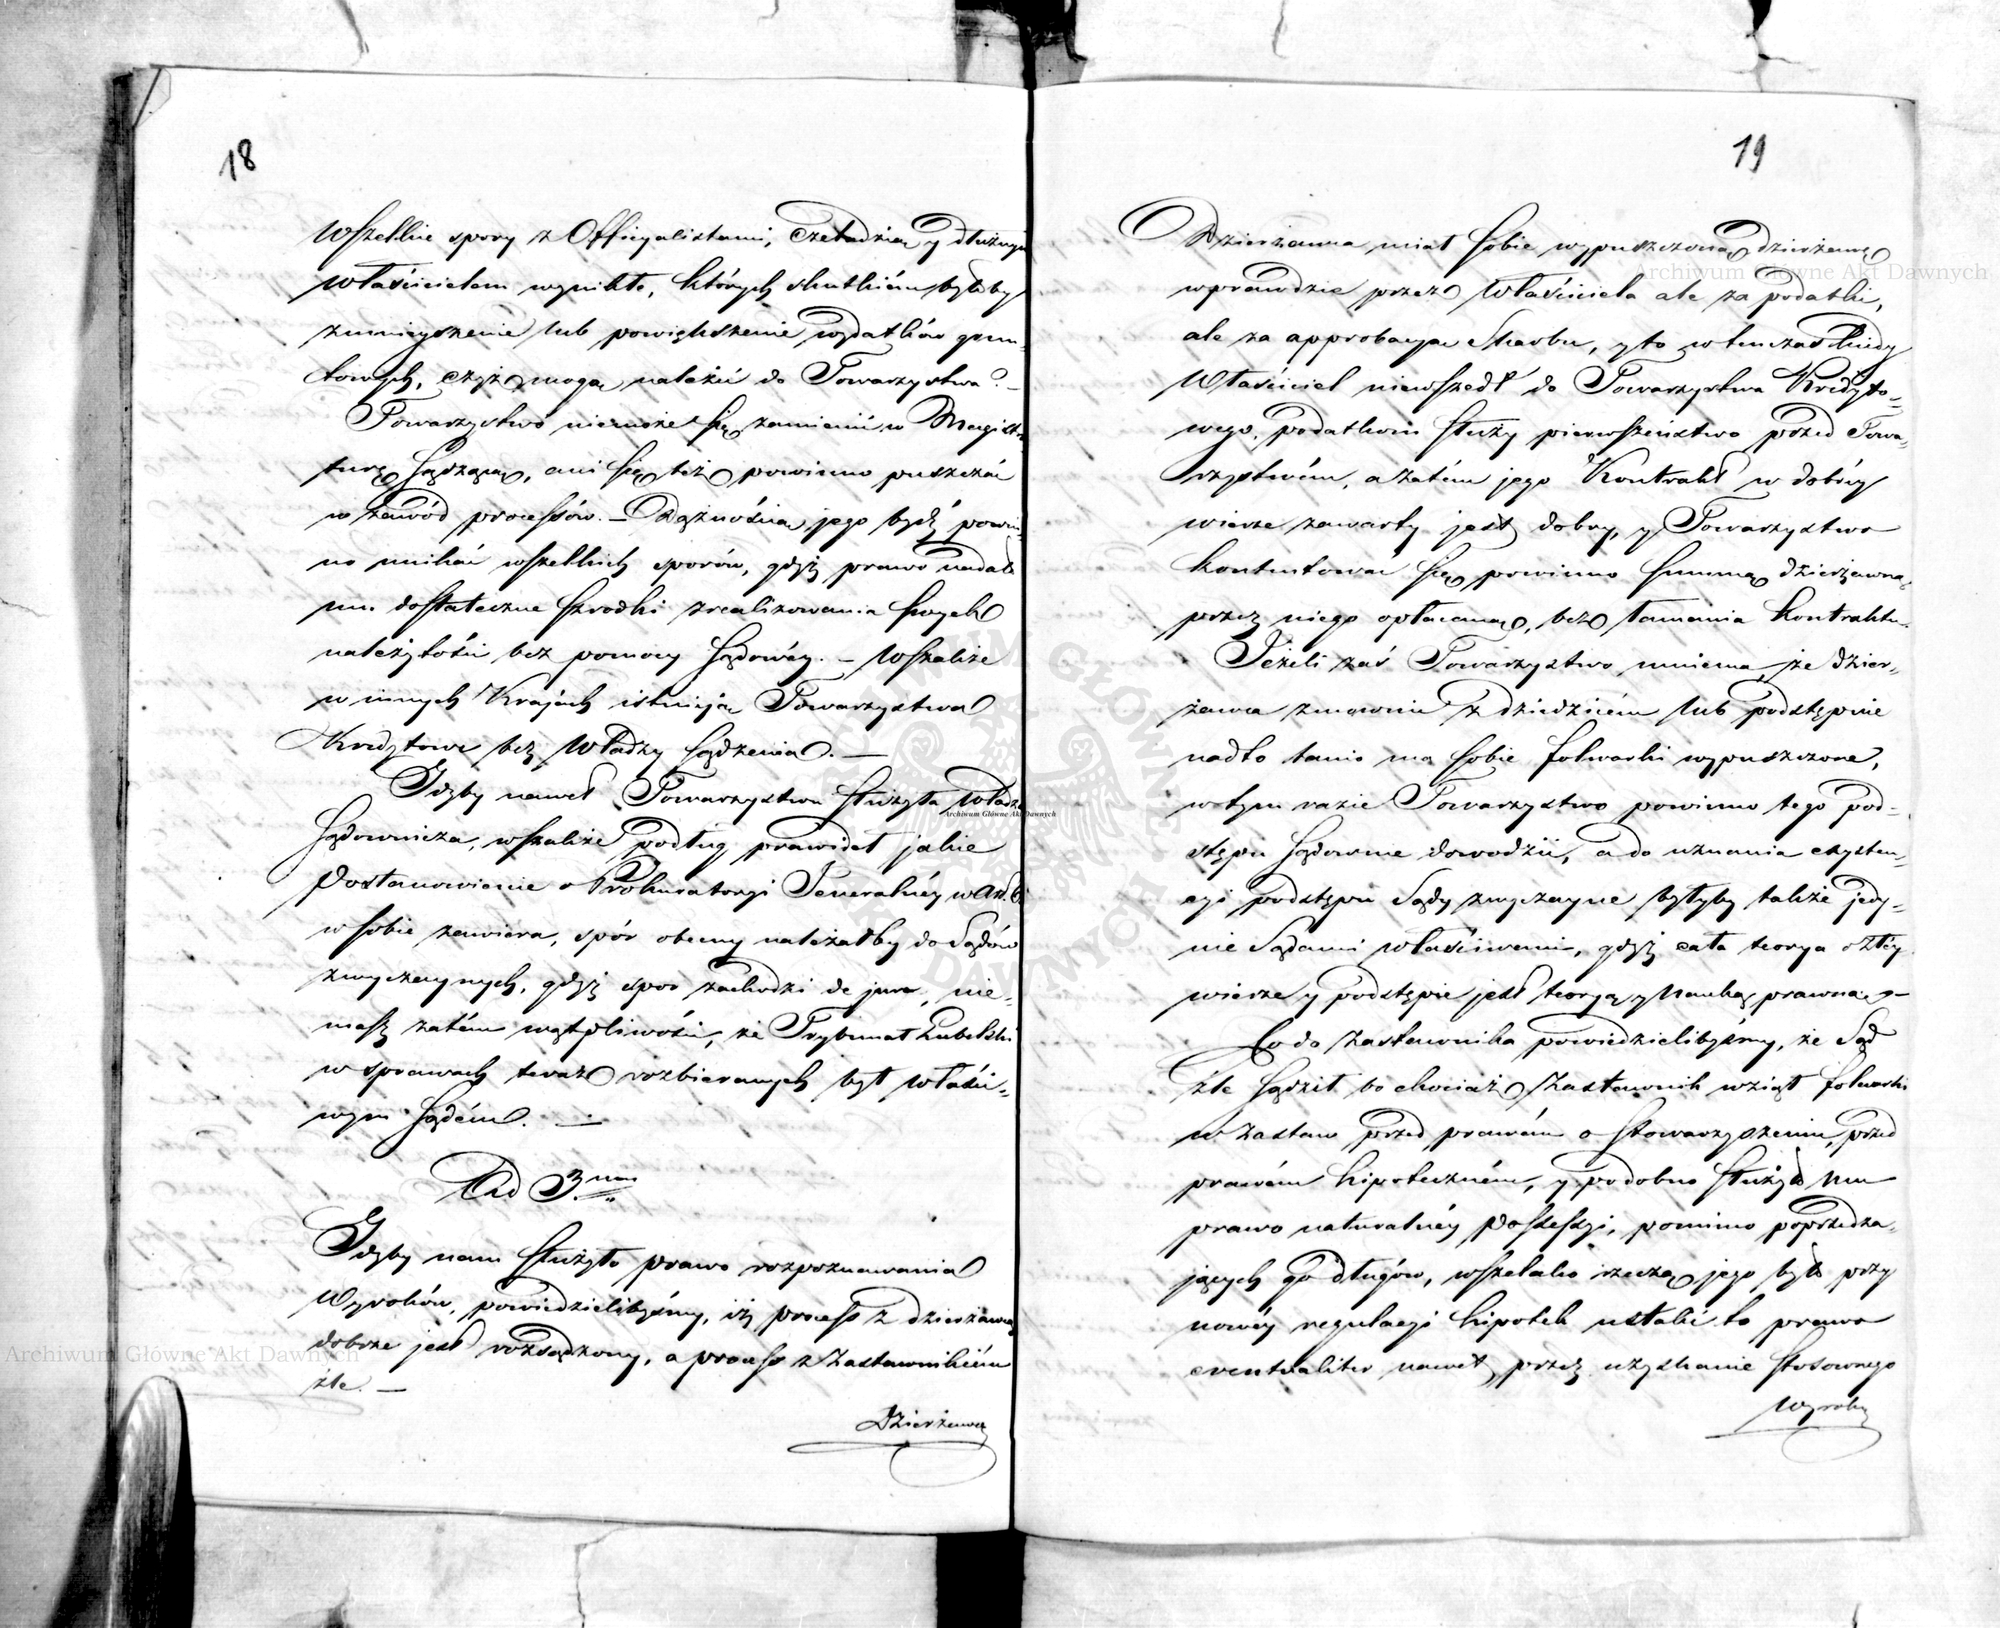 18
Wszelkie spory z Officyalistami, Czeladzią y dłużnym
właścicielem wynikłe, których skutkiem byłoby
zmnieyszenie lub powiększenie wydatków grun-
towych, czyż mogą należeć do Towarzystwa? –
Towarzystwo niemoże się zamienić w Magistra
turę Sądzącą, ani się też powinno puszczać
w zawód processów. – Dążnością jego bydź powin
no unikać wszelkich sporów, gdyż prawo nadało
mu dostateczne szrodki zrealizowania swych
należytości bez pomocy Sądowéy. – Wszakże
w innych Krajach istnieją Towarzystwa
Kredytowe bez Władzy sądzenia. –
Gdyby nawet Towarzystwu służyła Władza
Sądownicza, wszakże podług prawideł jakie
Postanowienie o Prokuratoryi Generalnéy w Art. 6.
w sobie zawiera, spór obecny należałby do Sądów
zwyczaynych, gdyż spór zachodzi de jure, nie-
masz zatém wątpliwości, że Trybunał Lubelski
w sprawach teraz rozbieranych był właści-
wym Sądém. –
Ad 3um
Gdyby nam służyło prawo rozpoznawania
Wyroków, powiedzielibyśmy, iż process z dzierżawcą
dobrze jest rozsądzony, a process z Zastawnikiém
źle. –
Dzierżawca
19
Dzierżawca miał sobie wypuszczoną dzierżawę
wprawdzie przez Właściciela ale za podatki,
ale za approbacyą Skarbu, y to wtenczas kiedy
Właściciel niewszedł do Towarzystwa Kredyto-
wego, podatkom służy pierwszeństwo przed Towa-
rzystwém, a zatém jego Kontrakt w dobréy
wierze zawarty jest dobry, y Towarzystwo
kontentować się powinno summą dzierżawną
przez niego opłacaną, bez łamania kontraktu.
Jeżeli zaś Towarzystwo mniema, że dzier-
żawca zmownie z dziedzicem lub podstępnie
nadto tanio ma sobie folwarki wypuszczone,
w tym razie Towarzystwo powinno tego pod-
stępu Sądownie dowodzić, a do uznania exysten-
cyi podstępu Sądy zwyczayne byłyby także jedy-
nie Sądami właściwemi, gdyż cała teorya o złéy
wierze y podstępie jest teoryą y Nauką prawną. –
Co do Zastawnika powiedzielibyśmy, że Sąd
źle sądził bo chociaż Zastawnik wziął folwarki
w Zastaw przed prawém o Stowarzyszeniu, przed
prawém hipoteczném, y podobno służyło mu
prawo naturalnéy Possessyi, pomimo poprzedza-
jących go długów, wszelako rzeczą jego było przy
nowéy regulacyi hipotek ustalić to prawo
eventualiter nawet przez uzyskanie stosownego
Wyroku
Archiwum Główne Akt Dawnych
Archiwum Główne Akt Dawnych
Archiwum Główne Akt Dawnych